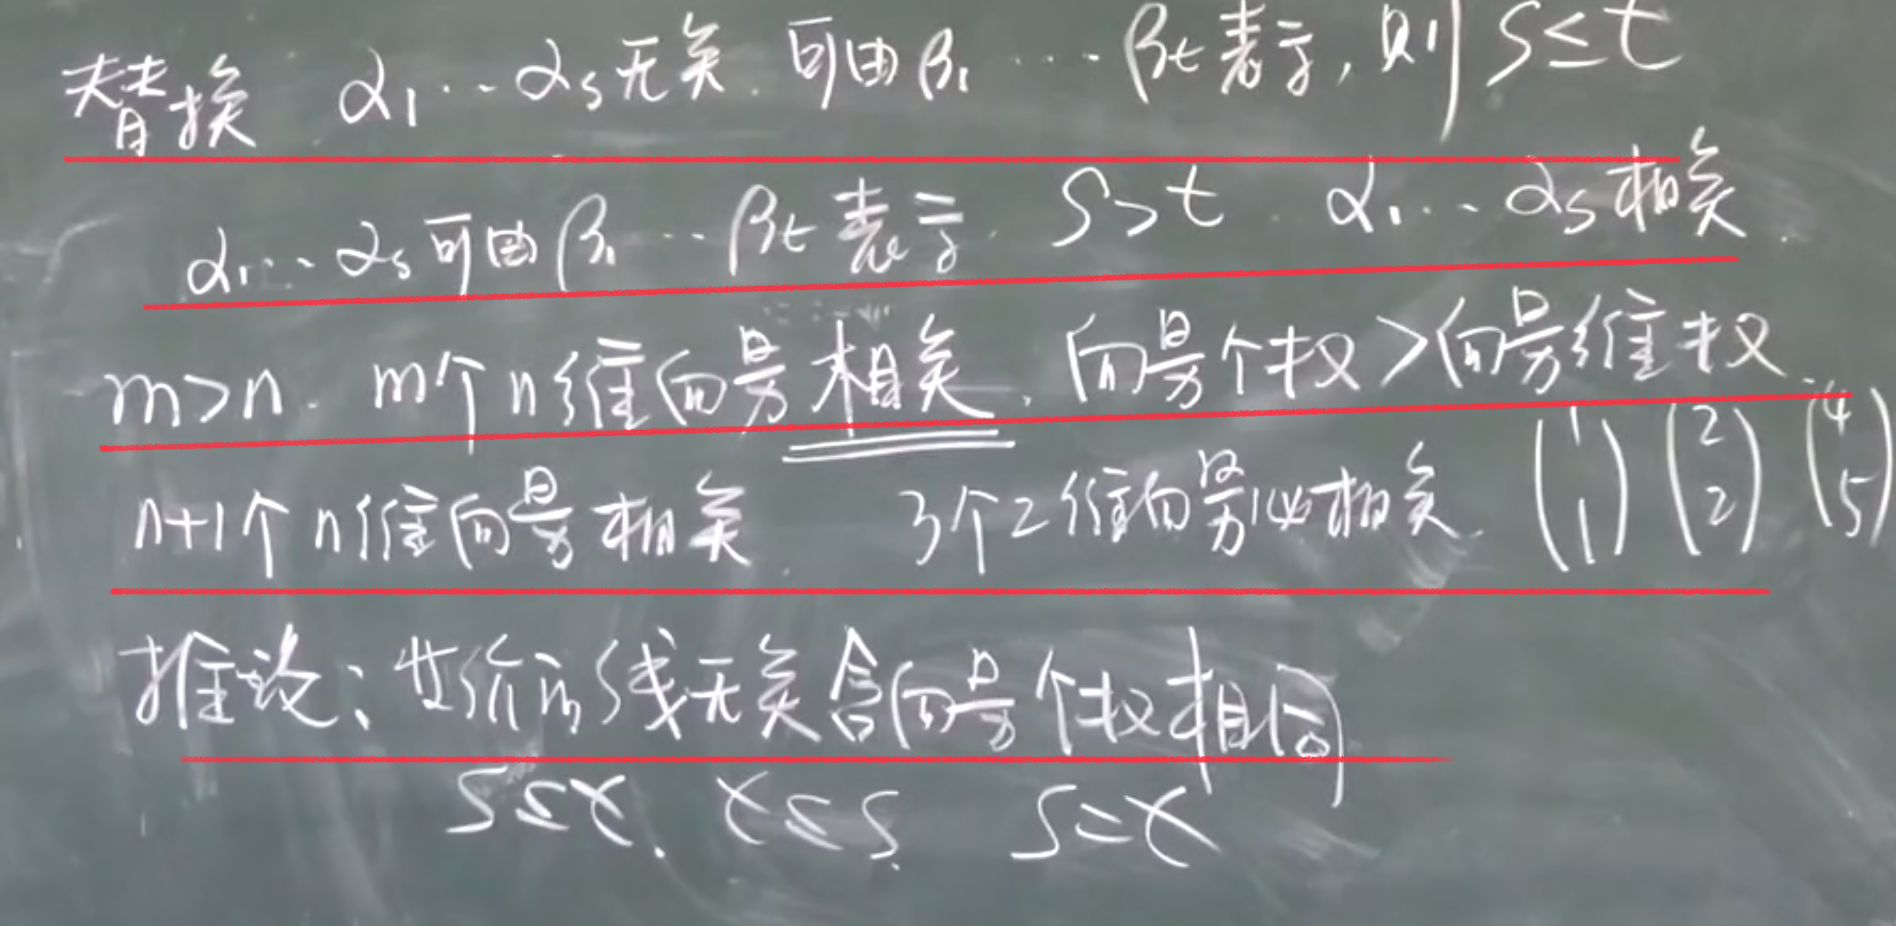 替换 α₁…αₛ无关.可由β₁…βₜ表示,则 s≤t
α₁…αₛ可由β₁…βₜ表示. s>t. α₁…αₛ相关.
m>n. m个n维向量相关. 向量个数>向量维数.
n+1个n维向量相关. 3个2维向量必相关. (1 1) (2 2) (4 5)
推论:等价的线无关含向量个数相同
s≤t. t≤s. s=t